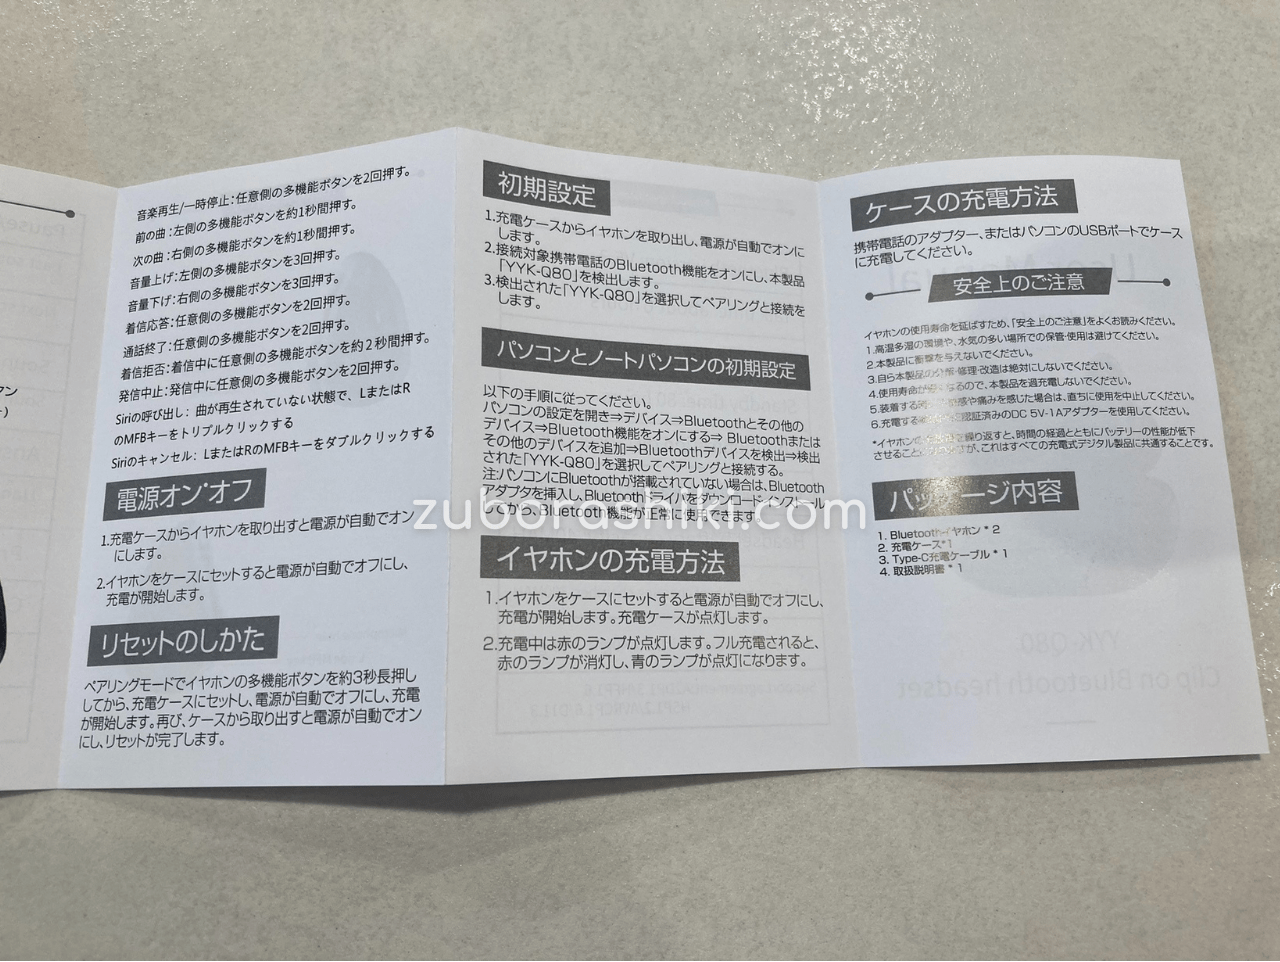 マン
音楽再生/一時停止:任意側の多機能ボタンを2回押す。
前の曲:左側の多機能ボタンを約1秒間押す。
次の曲:右側の多機能ボタンを約1秒間押す。
音量上げ:左側の多機能ボタンを3回押す。
音量下げ:右側の多機能ボタンを3回押す。
着信応答:任意側の多機能ボタンを2回押す。
通話終了:任意側の多機能ボタンを2回押す。
着信拒否:着信中に任意側の多機能ボタンを約2秒間押す。
発信中止:発信中に任意側の多機能ボタンを2回押す。
Siriの呼び出し: 曲が再生されていない状態で、LまたはR
のMFBキーをトリプルクリックする
Siriのキャンセル: LまたはRのMFBキーをダブルクリックする
電源オン・オフ
1.充電ケースからイヤホンを取り出すと電源が自動でオン
にします。
2.イヤホンをケースにセットすると電源が自動でオフにし、
充電が開始します。
リセットのしかた
ペアリングモードでイヤホンの多機能ボタンを約3秒長押し
してから、充電ケースにセットし、電源が自動でオフにし、充電
が開始します。再び、ケースから取り出すと電源が自動でオン
にし、リセットが完了します。
初期設定
1.充電ケースからイヤホンを取り出し、電源が自動でオンに
します。
2.接続対象携帯電話のBluetooth機能をオンにし、本製品
「YYK-Q80」を検出します。
3.検出された「YYK-Q80」を選択してペアリングと接続を
します。
パソコンとノートパソコンの初期設定
以下の手順に従ってください。
パソコンの設定を開き⇒デバイス⇒Bluetoothとその他の
デバイス⇒Bluetooth機能をオンにする⇒ Bluetoothまたは
その他のデバイスを追加⇒Bluetoothデバイスを検出⇒検出
された「YYK-Q80」を選択してペアリングと接続する。
注:パソコンにBluetoothが搭載されていない場合は、Bluetooth
アダプタを挿入し、Bluetoothドライバをダウンロード・インストール
してから、Bluetooth機能が正常に使用できます。
イヤホンの充電方法
1.イヤホンをケースにセットすると電源が自動でオフにし、
充電が開始します。充電ケースが点灯します。
2.充電中は赤のランプが点灯します。フル充電されると、
赤のランプが消灯し、青のランプが点灯になります。
ケースの充電方法
携帯電話のアダプター、またはパソコンのUSBポートでケース
に充電してください。
安全上のご注意
イヤホンの使用寿命を延ばすため、「安全上のご注意」をよくお読みください。
1.高温多湿の環境や、水気の多い場所での保管・使用は避けてください。
2.本製品に衝撃を与えないでください。
3.自ら本製品の分解・修理・改造は絶対にしないでください。
4.使用寿命が なるので、本製品を過充電しないでください。
5.装着する や痛みを感じた場合は、直ちに使用を中止してください。
6.充電する 認証済みのDC 5V-1Aアダプターを使用してください。
*イヤホン を繰り返すと、時間の経過とともにバッテリーの性能が低下
させること が、これはすべての充電式デジタル製品に共通することです。
パッケージ内容
1. Bluetoothイヤホン * 2
2. 充電ケース*1
3. Type-C充電ケーブル * 1
4. 取扱説明書 * 1
zuborashiki.com